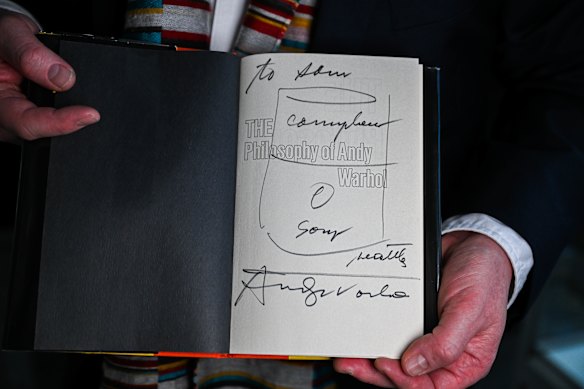 to Sam
Campbell
THE
Philosophy of Andy
Warhol
Soup
Andy Warhol